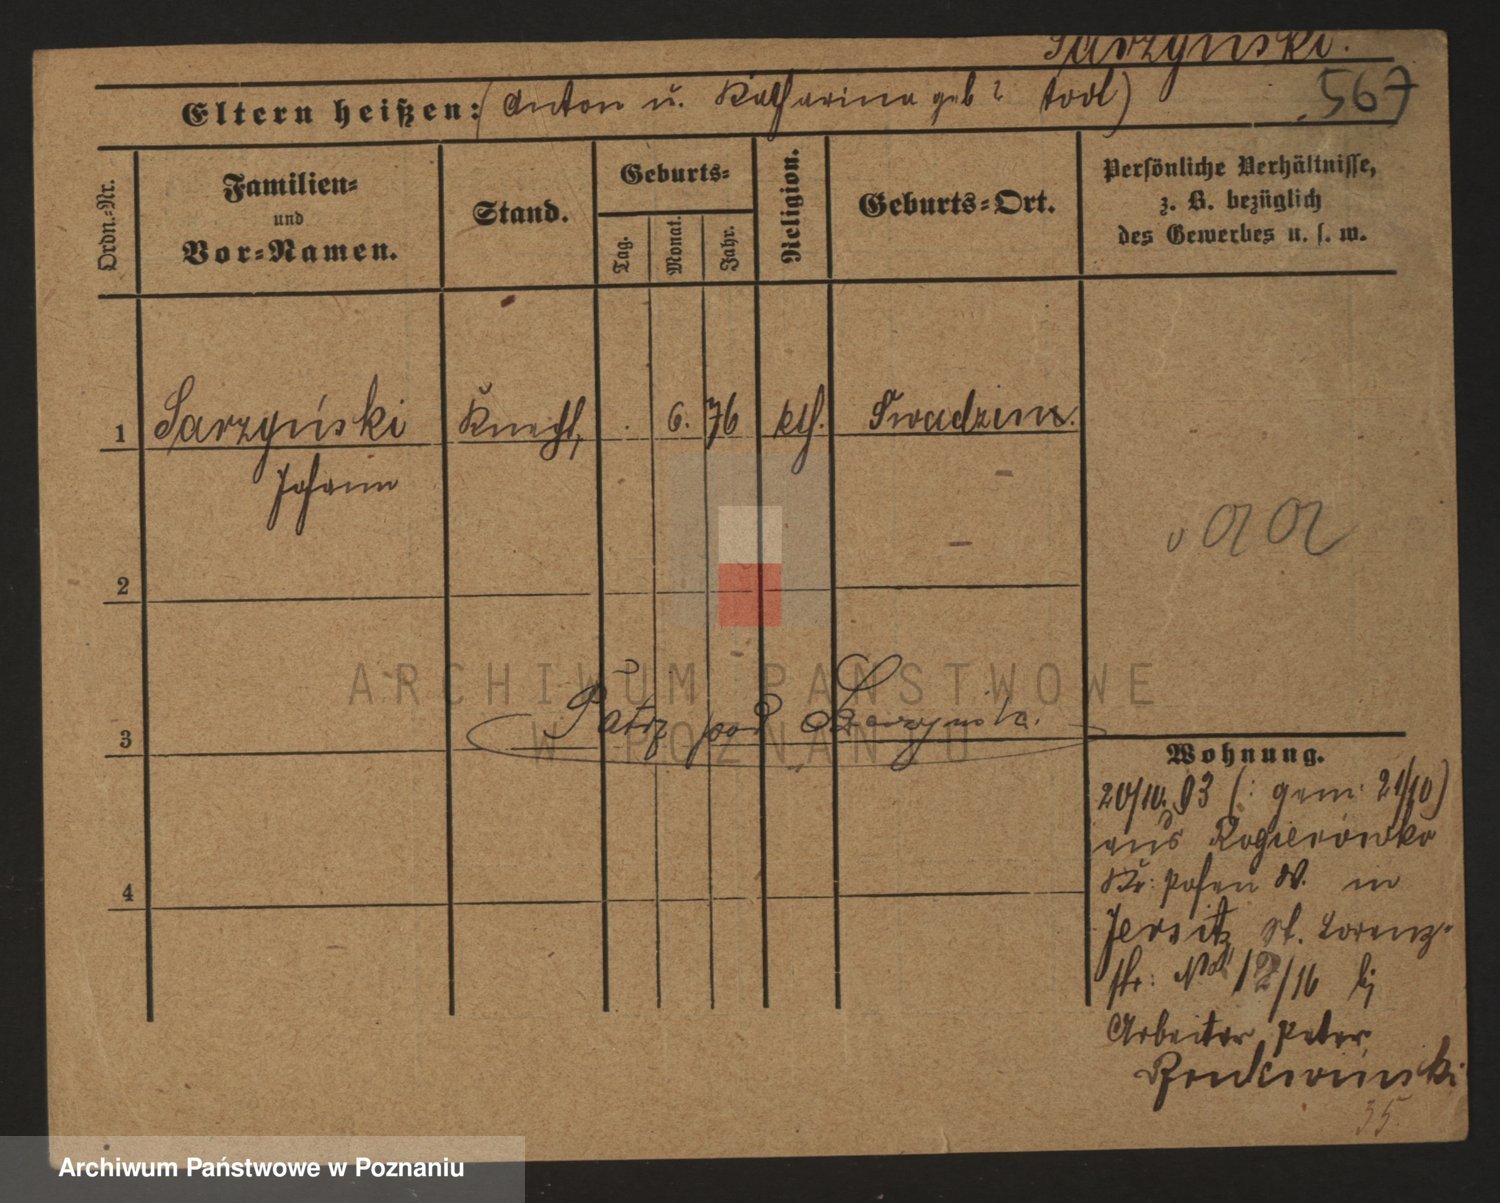 Sarzyński.
567
Eltern heißen: (Anton u. Katharina geb ? todt)
Ordn.-Nr.
Familien-
und
Vor-Namen.
Stand.
Geburts-
Tag.
Monat.
Jahr.
Religion.
Geburts-Ort.
Persönliche Verhältnisse,
z. B. bezüglich
des Gewerbes u. s. w.
1 Sarzyński Knecht, . 6. 76 kth. Swadzim.
Johann
2
3 Patrz pod
4
Wohnung.
20/10. 93 (: gem: 21/10)
aus Rogierowko
Kr: Posen W. in
Jersitz, St. Lorenz-
str: No 12/16 bei
Arbeiter Peter
35
ARCHIWUM PAŃSTWOWE
W POZNANIU
Archiwum Państwowe w Poznaniu